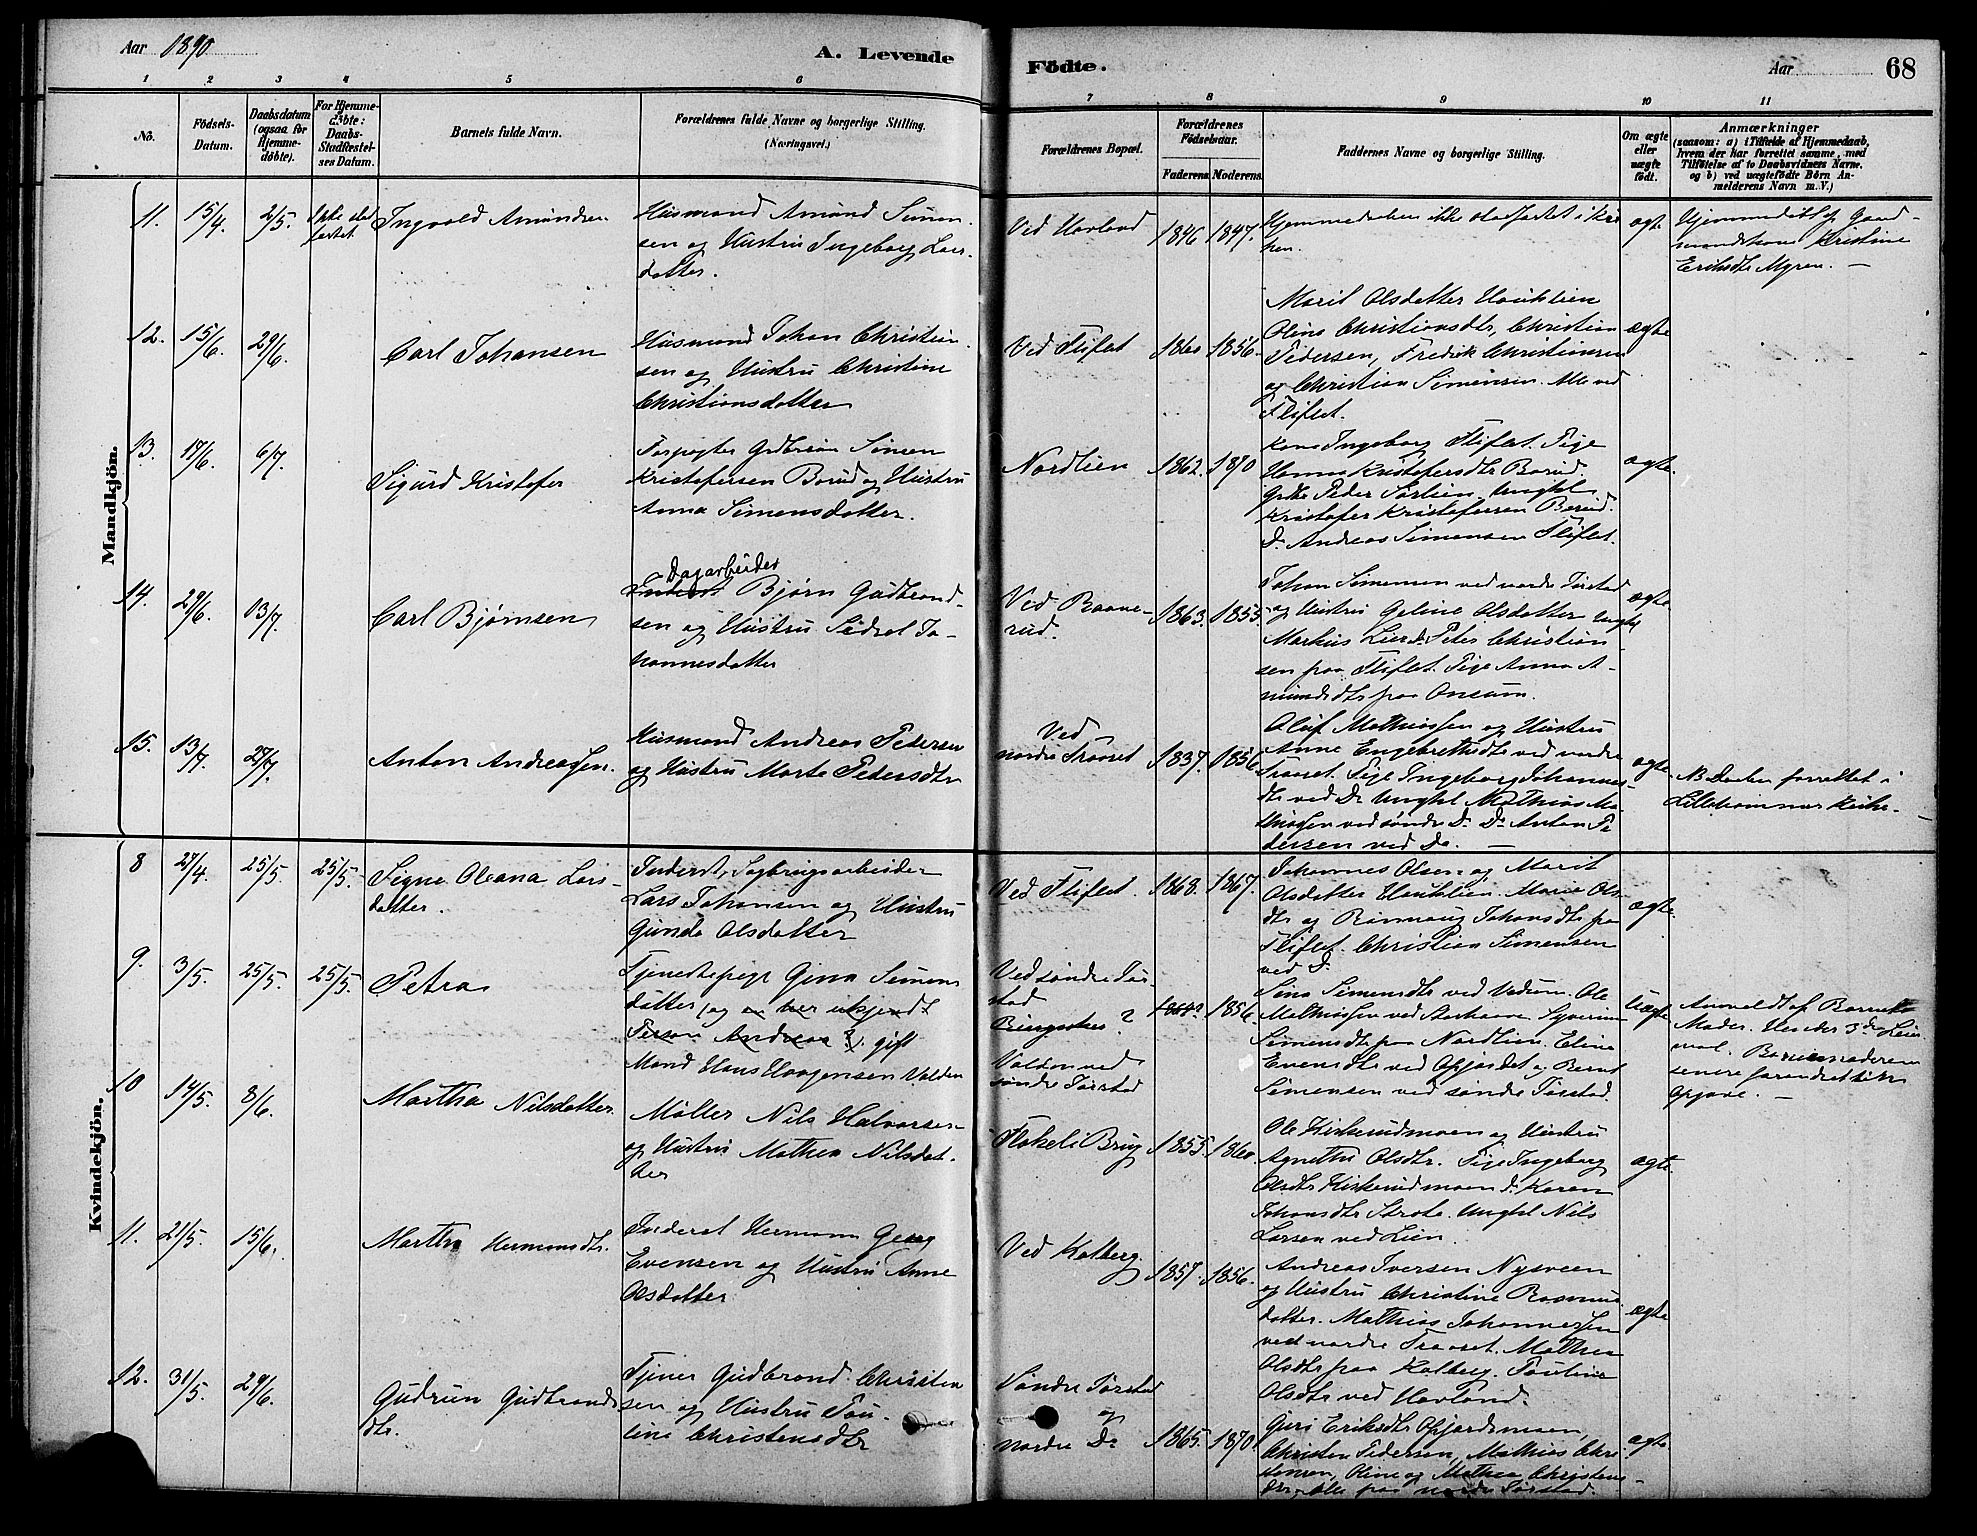 Aar 1890
A. Levende
Födte.
Aar
68
1 2 3 4 5 6 7 8 9 10 11
Nö.
Födsels-
Datum.
Daabsdatum
(ogsaa for
Hjemme-
döbte).
For Hjemme-
döbte:
Daabs-
Stadfæstel-
ses Datum.
Barnets fulde Navn.
Forældrenes fulde Navne og borgerlige Stilling.
(Næringsvei.)
Forældrenes Bopæl.
Forældrenes
Födselsaar.
Faderens. Moderens.
Faddernes Navne og borgerlige Stilling.
Om ægte
eller
uægte
födt.
Anmærkninger
(saasom: a) i Tilfælde af Hjemmedaab,
hvem der har forrettet samme, med
Tilföielse af to Daabsvidners Navne.
og b) ved uægtefödte Börn An-
melderens Navn m. V.)
Mandkjön.
11. 15/4. 2/5. Ikke stad
fæstet.
Ingvald Amundsen
Husmand Amund Simen-
sen og Hustru Ingeborg Lars-
datter.
Ved Hovland
1846 1847.
Hjemmedaaben ikke stadfæstet i Kir
ken.
ægte
Hjemmedöbt af Gaard-
mandskone Kristine
Eriksdtr Myren. —
12. 15/6. 29/6.
Carl Johansen
Husmand Johan Christian-
sen og Hustru Christine
Christiansdatter
Ved Fliflet
1860 1856.
Marit Olsdatter Hauklien
Oline Christiansdtr, Christian
Pedersen, Fredrik Christiansen
og Christian Simensen. Alle ved
Fliflet.
ægte
13. 17/6. 6/7.
Sigurd Kristofer
Forpagter Gdbruger Simen
Kristofersen Borud og Hustru
Anna Simensdatter.
Nordlien
1862. 1870
Kone Ingeborg Fliflet. Pige
Hanna Kristofersdtr Borud.
Gdbr Peder Sörlien. Ungkl
Kristofer Kristofersen Borud.
Do Andreas Simensen Fliflet.
ægte.
14. 29/6. 13/7.
Carl Bjørnsen
Dagarbeider
Inderst Bjørn Gudbrand-
sen og Hustru Sidsel Jo-
hannesdatter
Ved Raane-
rud.
1863. 1855.
Johan Simensen ved nordre Torstad
og Hustru Geline Olsdatter Ungkl
Markus Lier Do Peter Christian-
sen paa Fliflet. Pige Anna A-
mundsdtr paa Onsum.
ægte
15. 13/7. 27/7.
Anton Andreassen.
Husmand Andreas Pedersen
og Hustru Marte Pedersdtr
Ved
nordre Traaset
1837. 1856
Oluf Mathiassen og Hustru
Anne Engebretsdtr ved nordre
Traaset. Pige Ingeborg Johannes-
dtr ved Do Ungkl Mathias Ma-
thiassen ved søndre Do. Do Anton Pe-
dersen ved Do. —
ægte.
NB Daaben forrettet i
Lillehammer Kirke.
Kvindekjön.
8 27/4. 25/5. 25/5.
Signe Oleana Lars-
datter.
Inderst, Sagbrugsarbeider
Lars Johansen og Hustru
Gunda Olsdatter
Ved Fliflet.
1868. 1867.
Johannes Olsen og Marit
Olsdatter Hauklien. Marie Ols-
dtr og Rønnaug Johansdtr paa
Fliflet. Christian Simensen
ved Do
ægte.
9. 3/5. 25/5. 25/5.
Petra
Tjenestepige Gina Simens
datter, og en her ukjendt
Person Andreas ?. gift
Mand Hans Haagensen Volden
Ved søndre Tor-
stad
?
Volden ved
søndre Torstad
1856.
Sina Simensdtr ved Vedum. Ole
Mathiassen ved Syverine
Simensdtr paa Nordlien. Eline
Evensdtr ved Opjordet og Bernt
Simensen ved søndre Torstad.
Uægte
Anmeldt af Barnets
Moder. Hendes 3die Leier-
maal. Barnemoderens
senere forandret sin
Opgave. —
10 14/5. 8/6.
Martha Nilsdatter.
Møller Nils Halvorsen
og Hustru Mathea Nilsdat-
ter
Flakeli Brug
1855. 1860.
Ole Kirkerudmoen og Hustru
Agnethe Olsdtr. Pige Ingeborg
Olsdtr Kirkerudmoen Do Karen
Johansdtr Ungkl Nils
Larsen ved Lien.
ægte
11. 21/5. 15/6.
Martha Hermansdtr.
Inderst Hermann Georg
Evensen og Hustru Anne
Olsdatter
Ved Kolberg
1857. 1856.
Andreas Iversen Nysveen
og Hustru Christine Rasmus
datter. Mathias Johannessen
ved nordre Traaset. Mathea
Olsdtr paa Kolberg. Pauline
Olsdtr ved Hovland.
ægte
12. 31/5. 29/6.
Gudrun Gudbrands
dtr.
Tjener Gudbrand Christen
sen og Hustru Pau-
line Christensdtr
Søndre Torstad
og
nordre Do
1865. 1870
Guri Eriksdtr Opjordsmoen,
Christen Pedersen, Mathias Chri-
stensen, Oline og Mathea Christens-
dtr, alle paa nordre Torstad.
ægte